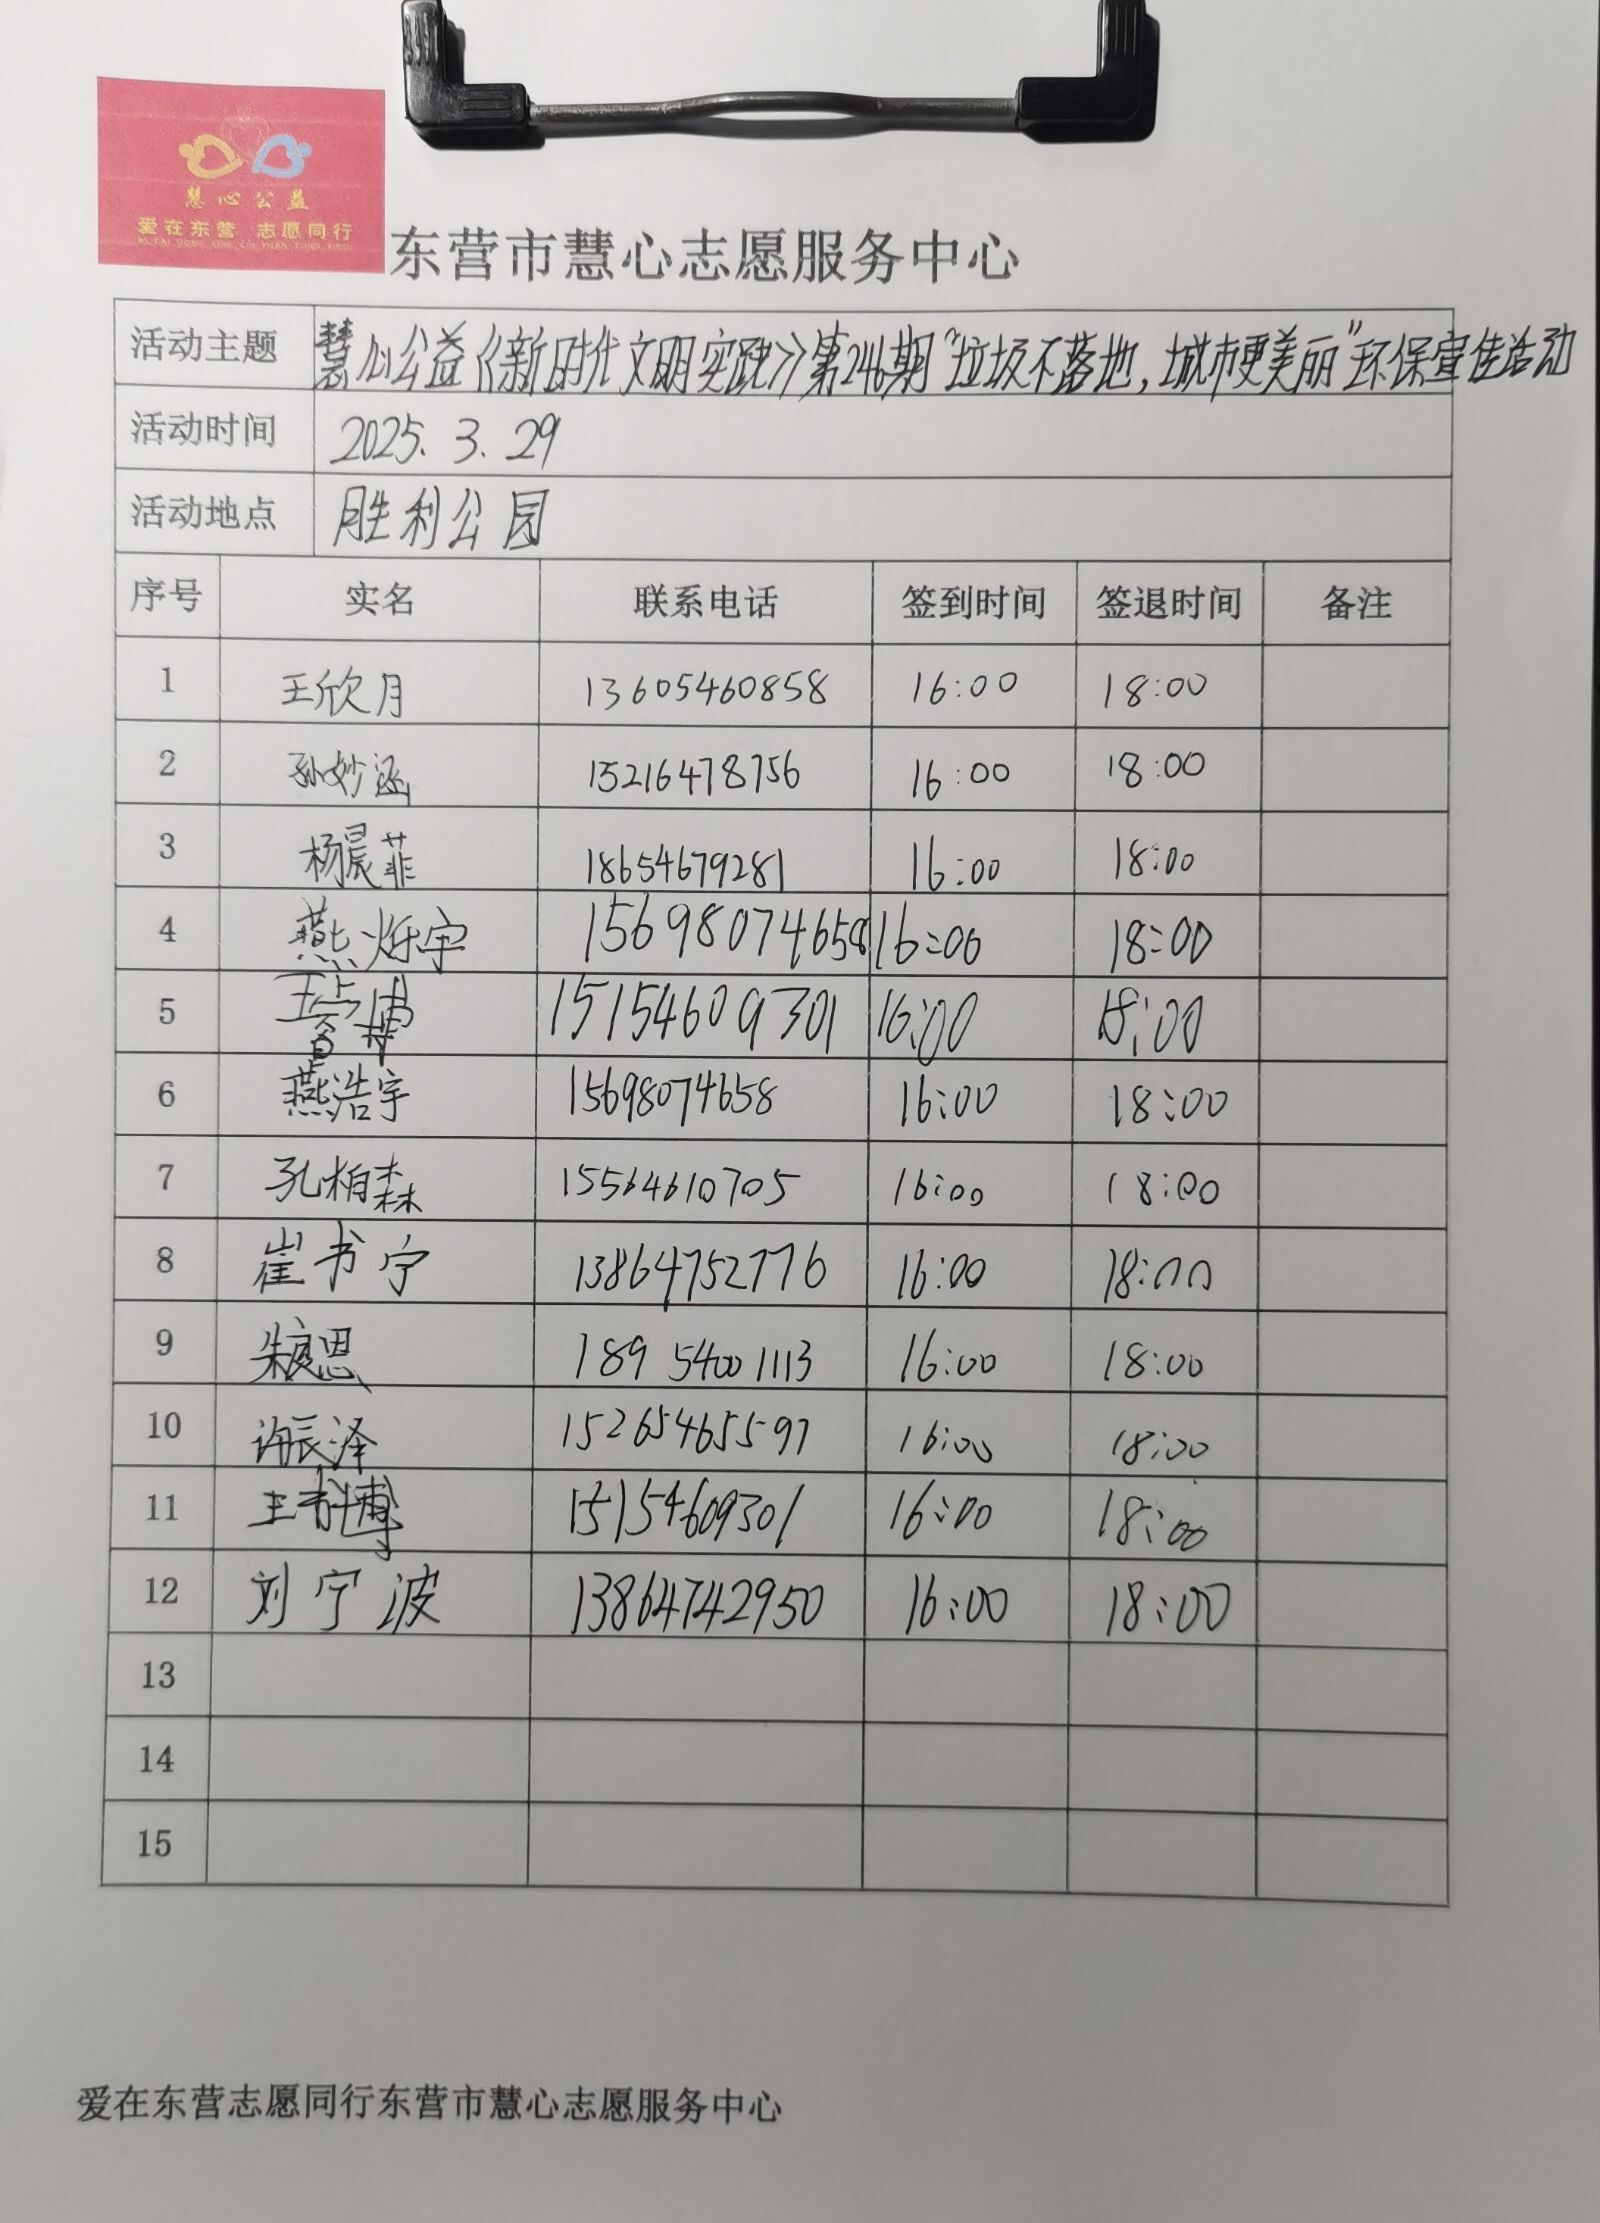 慧心公益
爱在东营 志愿同行
东营市慧心志愿服务中心
活动主题 慧心公益《新时代文明实践》第246期“垃圾不落地,城市更美丽”环保宣传活动
活动时间 2025.3.29
活动地点 胜利公园
序号 实名 联系电话 签到时间 签退时间 备注
1 王欣月 13605460858 16:00 18:00
2 孙妙涵 15216478756 16:00 18:00
3 杨晨菲 18654679281 16:00 18:00
4 燕烁宇 15698074658 16:00 18:00
5 王 15154609301 16:00 18:00
6 燕浩宇 15698074658 16:00 18:00
7 孔柏森 15564610705 16:00 18:00
8 崔书宁 13864752776 16:00 18:00
9 朱思 18954001113 16:00 18:00
10 许辰泽 15265465597 16:00 18:00
11 王博 15154609301 16:00 18:00
12 刘宁波 13864742950 16:00 18:00
13
14
15
爱在东营志愿同行东营市慧心志愿服务中心